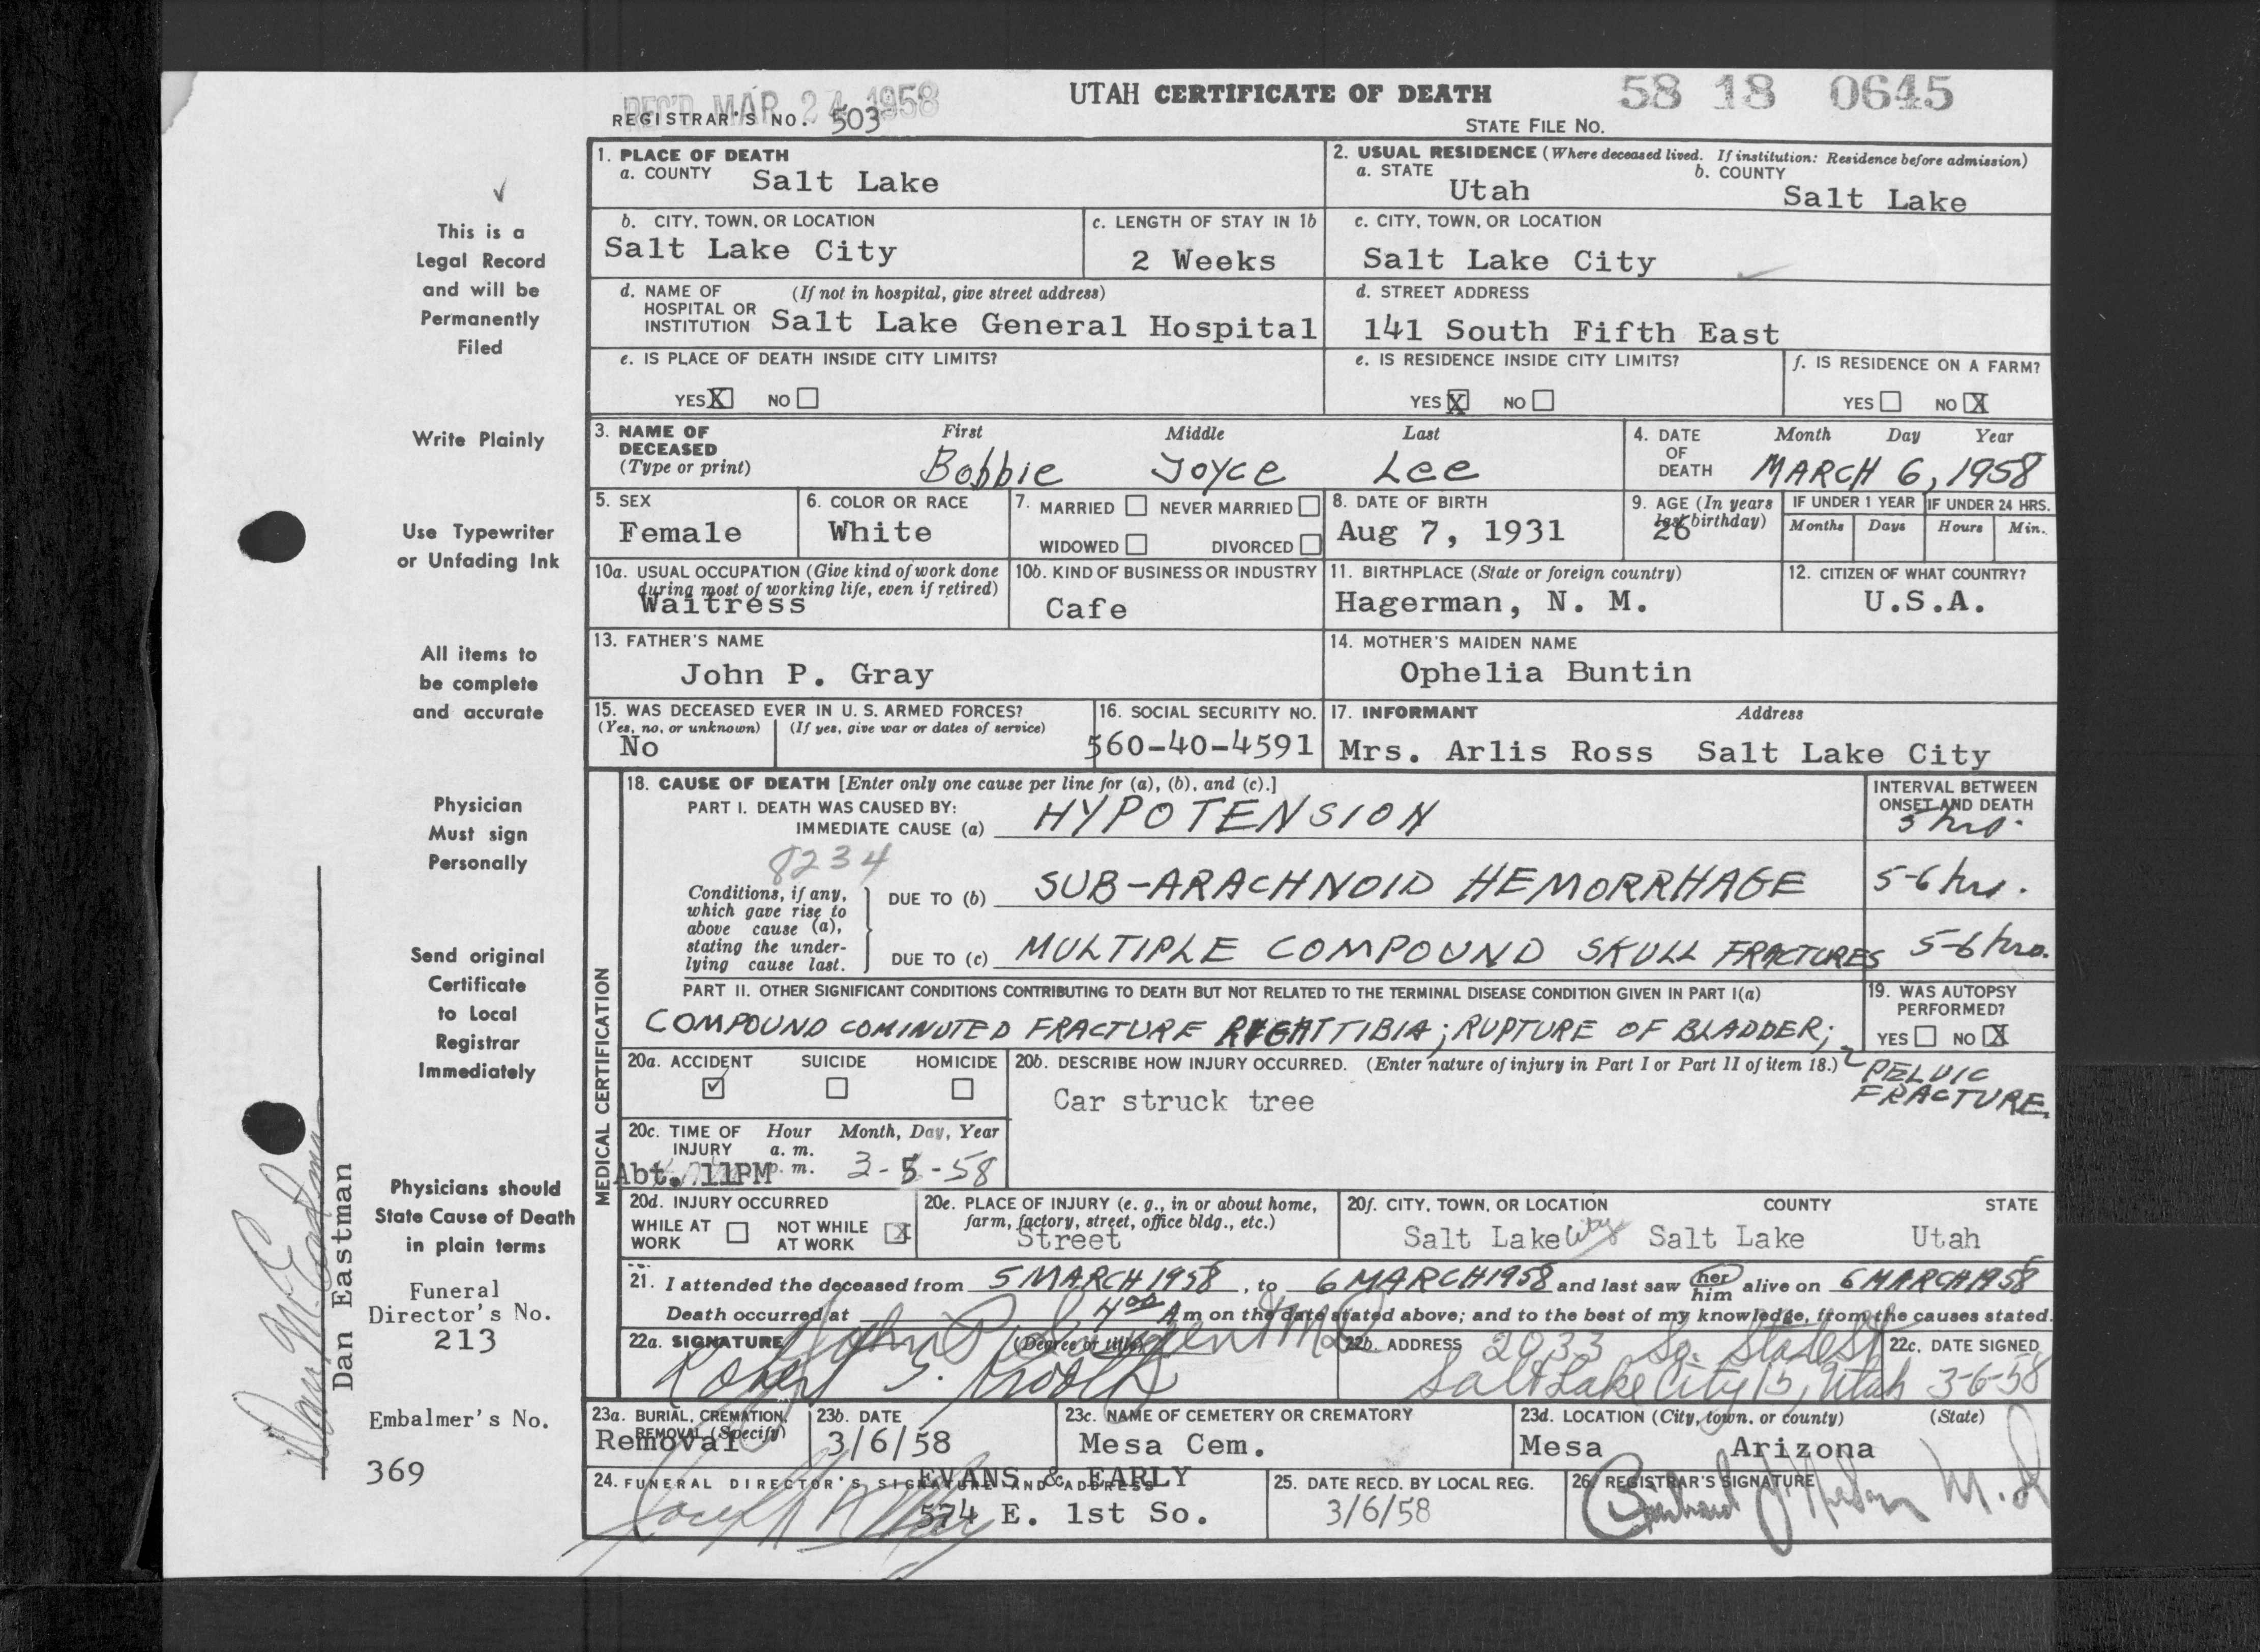 REC'D MAR 24 1958
UTAH CERTIFICATE OF DEATH
58 18 0645
REGISTRAR'S NO. 503
STATE FILE NO.
This is a
Legal Record
and will be
Permanently
Filed
Write Plainly
Use Typewriter
or Unfading Ink
All items to
be complete
and accurate
Physician
Must sign
Personally
Send original
Certificate
to Local
Registrar
Immediately
Physicians should
State Cause of Death
in plain terms
Funeral
Director's No.
213
Embalmer's No.
369
Dan Eastman
1. PLACE OF DEATH
a. COUNTY Salt Lake
2. USUAL RESIDENCE (Where deceased lived. If institution: Residence before admission)
a. STATE Utah b. COUNTY Salt Lake
b. CITY, TOWN, OR LOCATION Salt Lake City
c. LENGTH OF STAY IN 1b 2 Weeks
c. CITY, TOWN, OR LOCATION Salt Lake City
d. NAME OF HOSPITAL OR INSTITUTION (If not in hospital, give street address) Salt Lake General Hospital
d. STREET ADDRESS 141 South Fifth East
e. IS PLACE OF DEATH INSIDE CITY LIMITS?
YES X NO
e. IS RESIDENCE INSIDE CITY LIMITS?
YES X NO
f. IS RESIDENCE ON A FARM?
YES NO X
3. NAME OF DECEASED (Type or print) First Middle Last
Bobbie Joyce Lee
4. DATE OF DEATH Month Day Year
MARCH 6, 1958
5. SEX Female
6. COLOR OR RACE White
7. MARRIED NEVER MARRIED
WIDOWED DIVORCED
8. DATE OF BIRTH Aug 7, 1931
9. AGE (In years last birthday) 26
IF UNDER 1 YEAR Months Days
IF UNDER 24 HRS. Hours Min.
10a. USUAL OCCUPATION (Give kind of work done during most of working life, even if retired) Waitress
10b. KIND OF BUSINESS OR INDUSTRY Cafe
11. BIRTHPLACE (State or foreign country) Hagerman, N. M.
12. CITIZEN OF WHAT COUNTRY? U.S.A.
13. FATHER'S NAME John P. Gray
14. MOTHER'S MAIDEN NAME Ophelia Buntin
15. WAS DECEASED EVER IN U. S. ARMED FORCES?
(Yes, no, or unknown) (If yes, give war or dates of service)
No
16. SOCIAL SECURITY NO. 560-40-4591
17. INFORMANT Address
Mrs. Arlis Ross Salt Lake City
MEDICAL CERTIFICATION
18. CAUSE OF DEATH [Enter only one cause per line for (a), (b), and (c).]
INTERVAL BETWEEN ONSET AND DEATH
PART I. DEATH WAS CAUSED BY:
IMMEDIATE CAUSE (a) HYPOTENSION 5 hrs.
8234
Conditions, if any, which gave rise to above cause (a), stating the underlying cause last.
DUE TO (b) SUB-ARACHNOID HEMORRHAGE 5-6 hrs.
DUE TO (c) MULTIPLE COMPOUND SKULL FRACTURES 5-6 hrs.
PART II. OTHER SIGNIFICANT CONDITIONS CONTRIBUTING TO DEATH BUT NOT RELATED TO THE TERMINAL DISEASE CONDITION GIVEN IN PART I(a)
COMPOUND COMINUTED FRACTURE RIGHT TIBIA; RUPTURE OF BLADDER; PELVIC FRACTURE.
19. WAS AUTOPSY PERFORMED?
YES NO X
20a. ACCIDENT SUICIDE HOMICIDE
20b. DESCRIBE HOW INJURY OCCURRED. (Enter nature of injury in Part I or Part II of item 18.)
Car struck tree
20c. TIME OF INJURY Hour Month, Day, Year
a. m.
p. m.
Abt. 11PM 3-5-58
20d. INJURY OCCURRED
WHILE AT WORK NOT WHILE AT WORK X
20e. PLACE OF INJURY (e. g., in or about home, farm, factory, street, office bldg., etc.)
Street
20f. CITY, TOWN, OR LOCATION COUNTY STATE
Salt Lake City Salt Lake Utah
21. I attended the deceased from 5 MARCH 1958, to 6 MARCH 1958 and last saw her him alive on 6 MARCH 1958
Death occurred at 4 00 A m on the date stated above; and to the best of my knowledge, from the causes stated.
22a. SIGNATURE (Degree or title)
22b. ADDRESS 2033 So. State St
Salt Lake City 15, Utah
22c. DATE SIGNED 3-6-58
23a. BURIAL, CREMATION, REMOVAL (Specify) Removal
23b. DATE 3/6/58
23c. NAME OF CEMETERY OR CREMATORY Mesa Cem.
23d. LOCATION (City, town, or county) (State)
Mesa Arizona
24. FUNERAL DIRECTOR'S SIGNATURE AND ADDRESS
EVANS & EARLY
574 E. 1st So.
25. DATE RECD. BY LOCAL REG. 3/6/58
26. REGISTRAR'S SIGNATURE